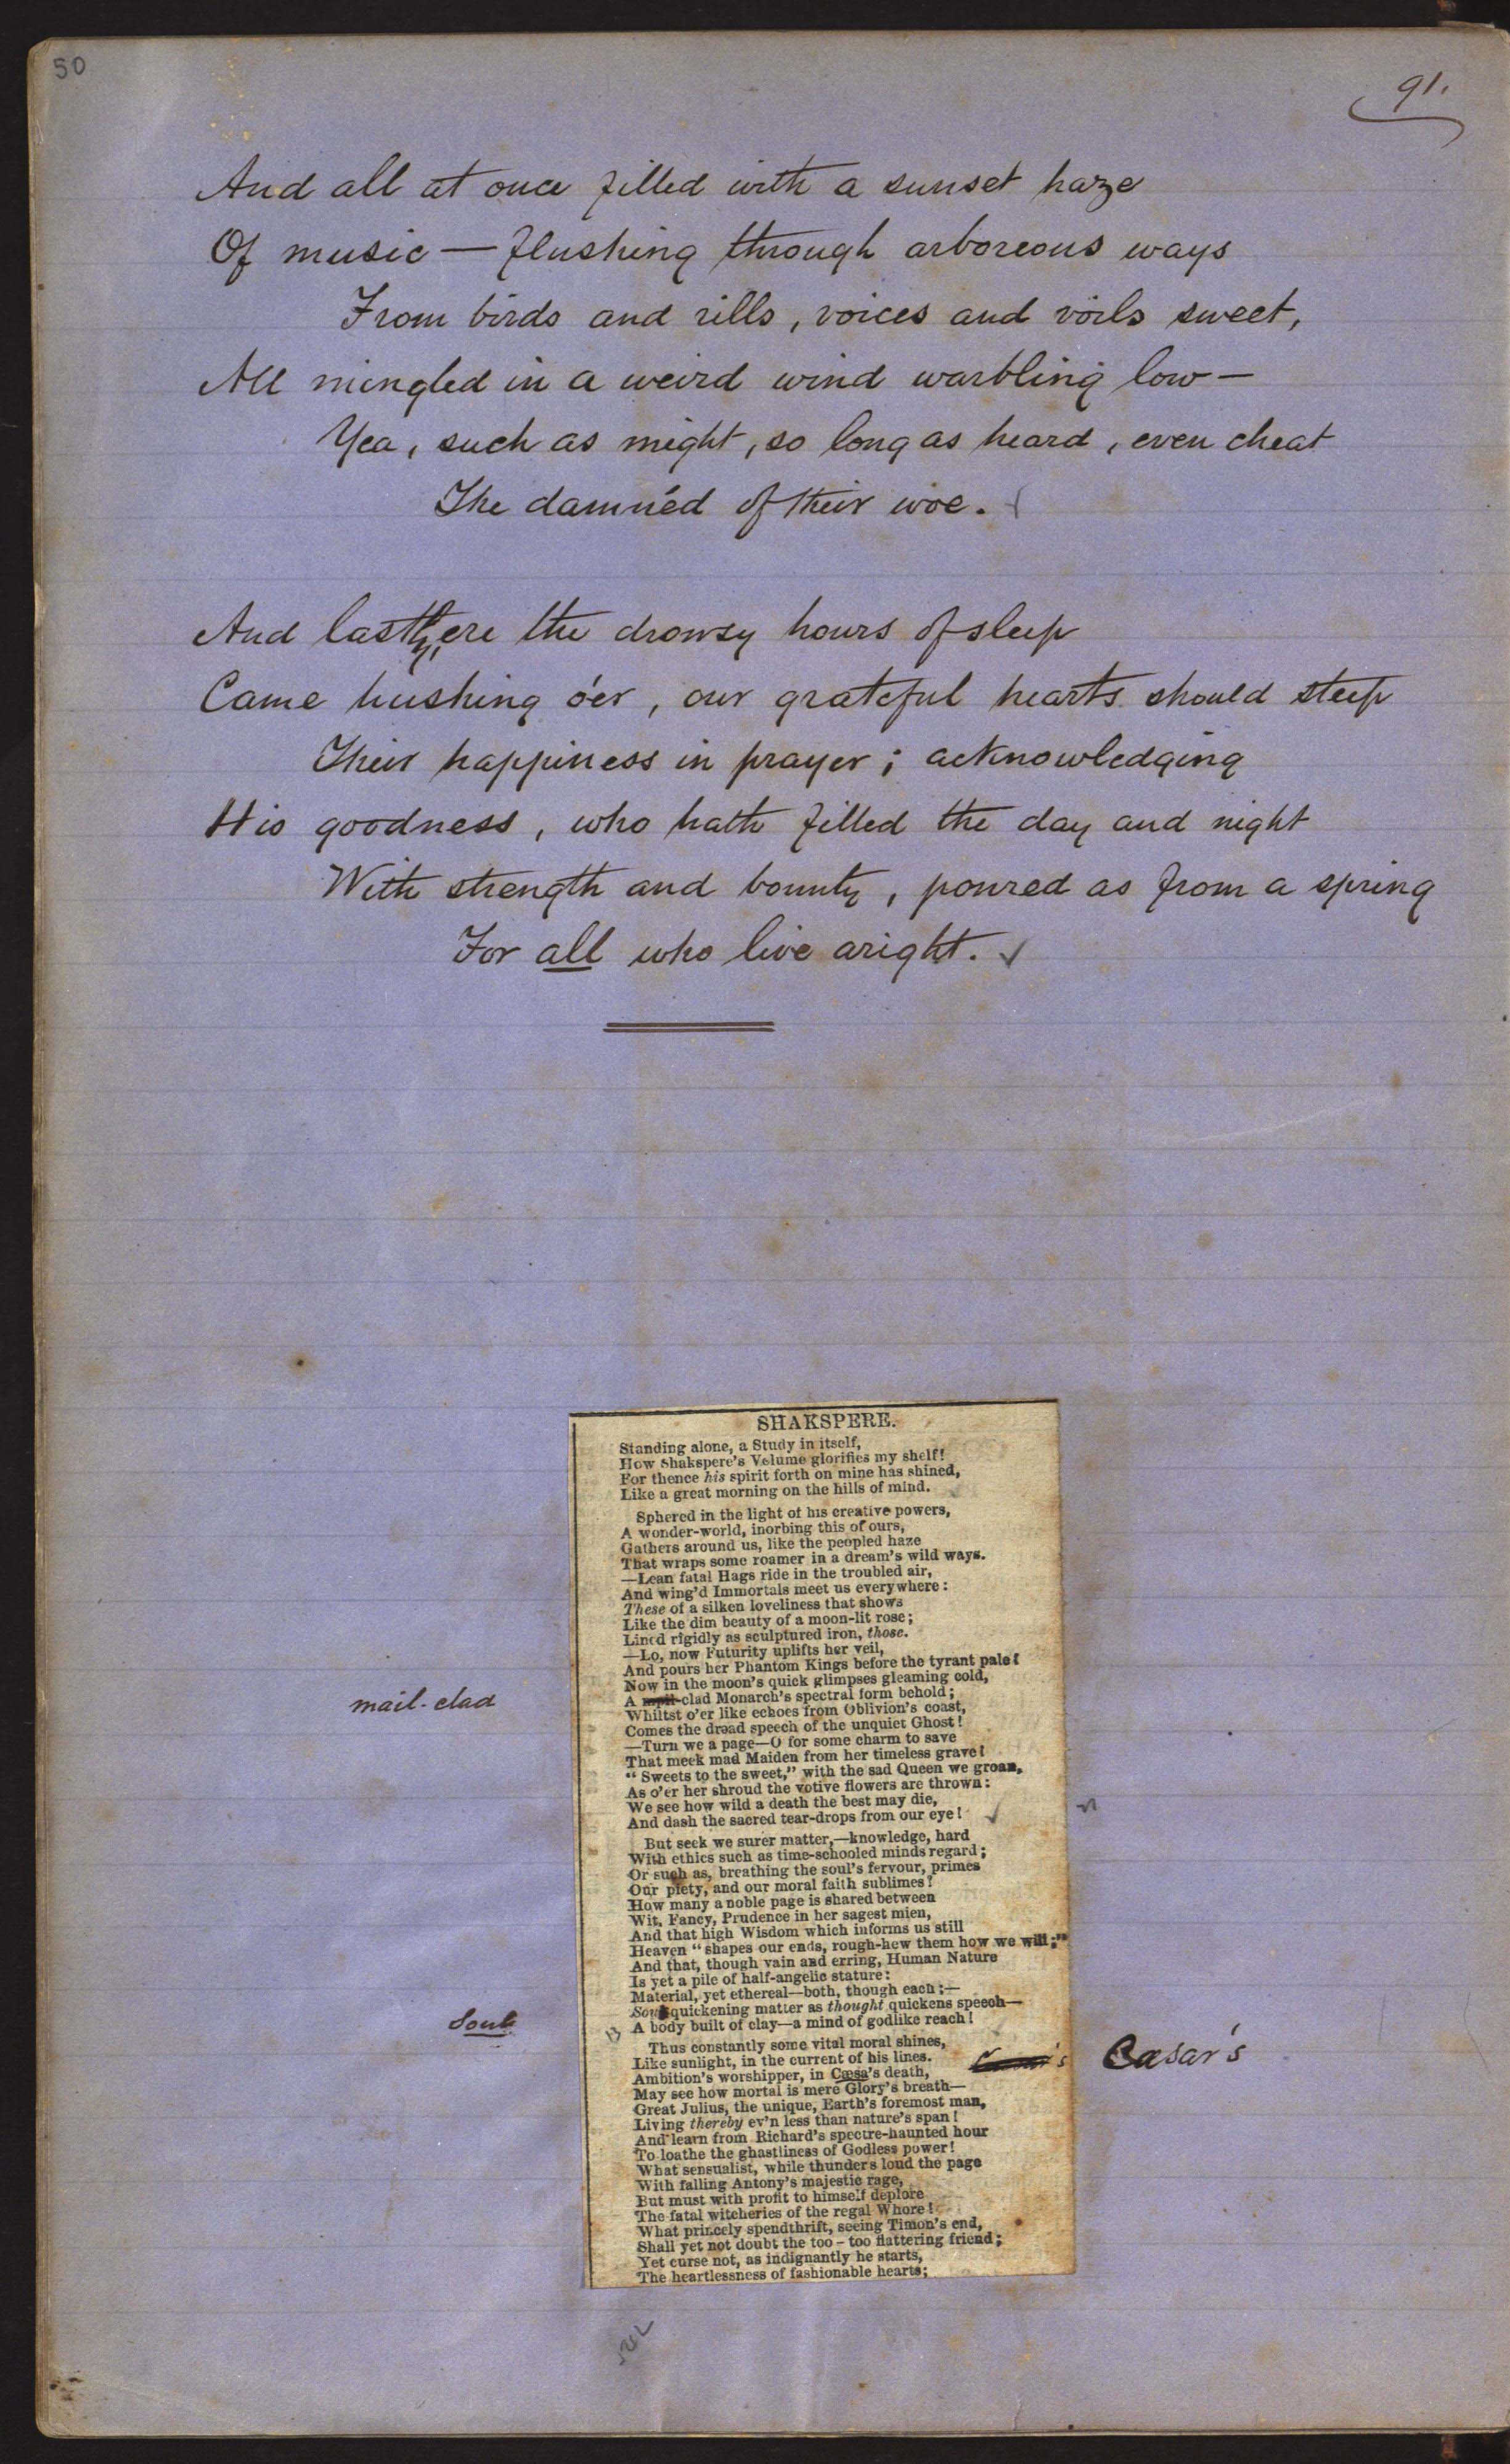 50
91.
And all at once filled with a sunset haze
Of music — flushing through arboreous ways
From birds and rills, voices and voils sweet,
All mingled in a weird wind warbling low —
Yea, such as might, so long as heard, even cheat
The damnéd of their woe.
And lastly, ere the drowsy hours of sleep
Came hushing o'er, our grateful hearts should steep
Their happiness in prayer; acknowledging
His goodness, who hath filled the day and night
With strength and bounty, poured as from a spring
For all who live aright. ✓
SHAKSPERE.
Standing alone, a Study in itself,
How Shakspere's Volume glorifies my shelf!
For thence his spirit forth on mine has shined,
Like a great morning on the hills of mind.
Sphered in the light of his creative powers,
A wonder-world, inorbing this of ours,
Gathers around us, like the peopled haze
That wraps some roamer in a dream's wild ways.
—Lean fatal Hags ride in the troubled air,
And wing'd Immortals meet us everywhere:
These of a silken loveliness that shows
Like the dim beauty of a moon-lit rose;
Lined rigidly as sculptured iron, those.
—Lo, now Futurity uplifts her veil,
And pours her Phantom Kings before the tyrant pale!
Now in the moon's quick glimpses gleaming cold,
mail-clad
A -clad Monarch's spectral form behold;
Whiltst o'er like echoes from Oblivion's coast,
Comes the dread speech of the unquiet Ghost!
—Turn we a page—O for some charm to save
That meek mad Maiden from her timeless grave!
"Sweets to the sweet," with the sad Queen we groan,
As o'er her shroud the votive flowers are thrown:
We see how wild a death the best may die,
And dash the sacred tear-drops from our eye! ✓
But seek we surer matter,—knowledge, hard
With ethics such as time-schooled minds regard;
Or such as, breathing the soul's fervour, primes
Our piety, and our moral faith sublimes!
How many a noble page is shared between
Wit, Fancy, Prudence in her sagest mien,
And that high Wisdom which informs us still
Heaven "shapes our ends, rough-hew them how we will;"
And that, though vain and erring, Human Nature
Is yet a pile of half-angelic stature:
Material, yet ethereal—both, though each;—
Soul
Soul quickening matter as thought quickens speech—
A body built of clay—a mind of godlike reach!
Thus constantly some vital moral shines,
Like sunlight, in the current of his lines.
Cæsar's
Ambition's worshipper, in Cæsa's death,
May see how mortal is mere Glory's breath—
Great Julius, the unique, Earth's foremost man,
Living thereby ev'n less than nature's span!
And learn from Richard's spectre-haunted hour
To loathe the ghastliness of Godless power!
What sensualist, while thunders loud the page
With falling Antony's majestic rage,
But must with profit to himself deplore
The fatal witcheries of the regal Whore!
What princely spendthrift, seeing Timon's end,
Shall yet not doubt the too-too flattering friend;
Yet curse not, as indignantly he starts,
The heartlessness of fashionable hearts;